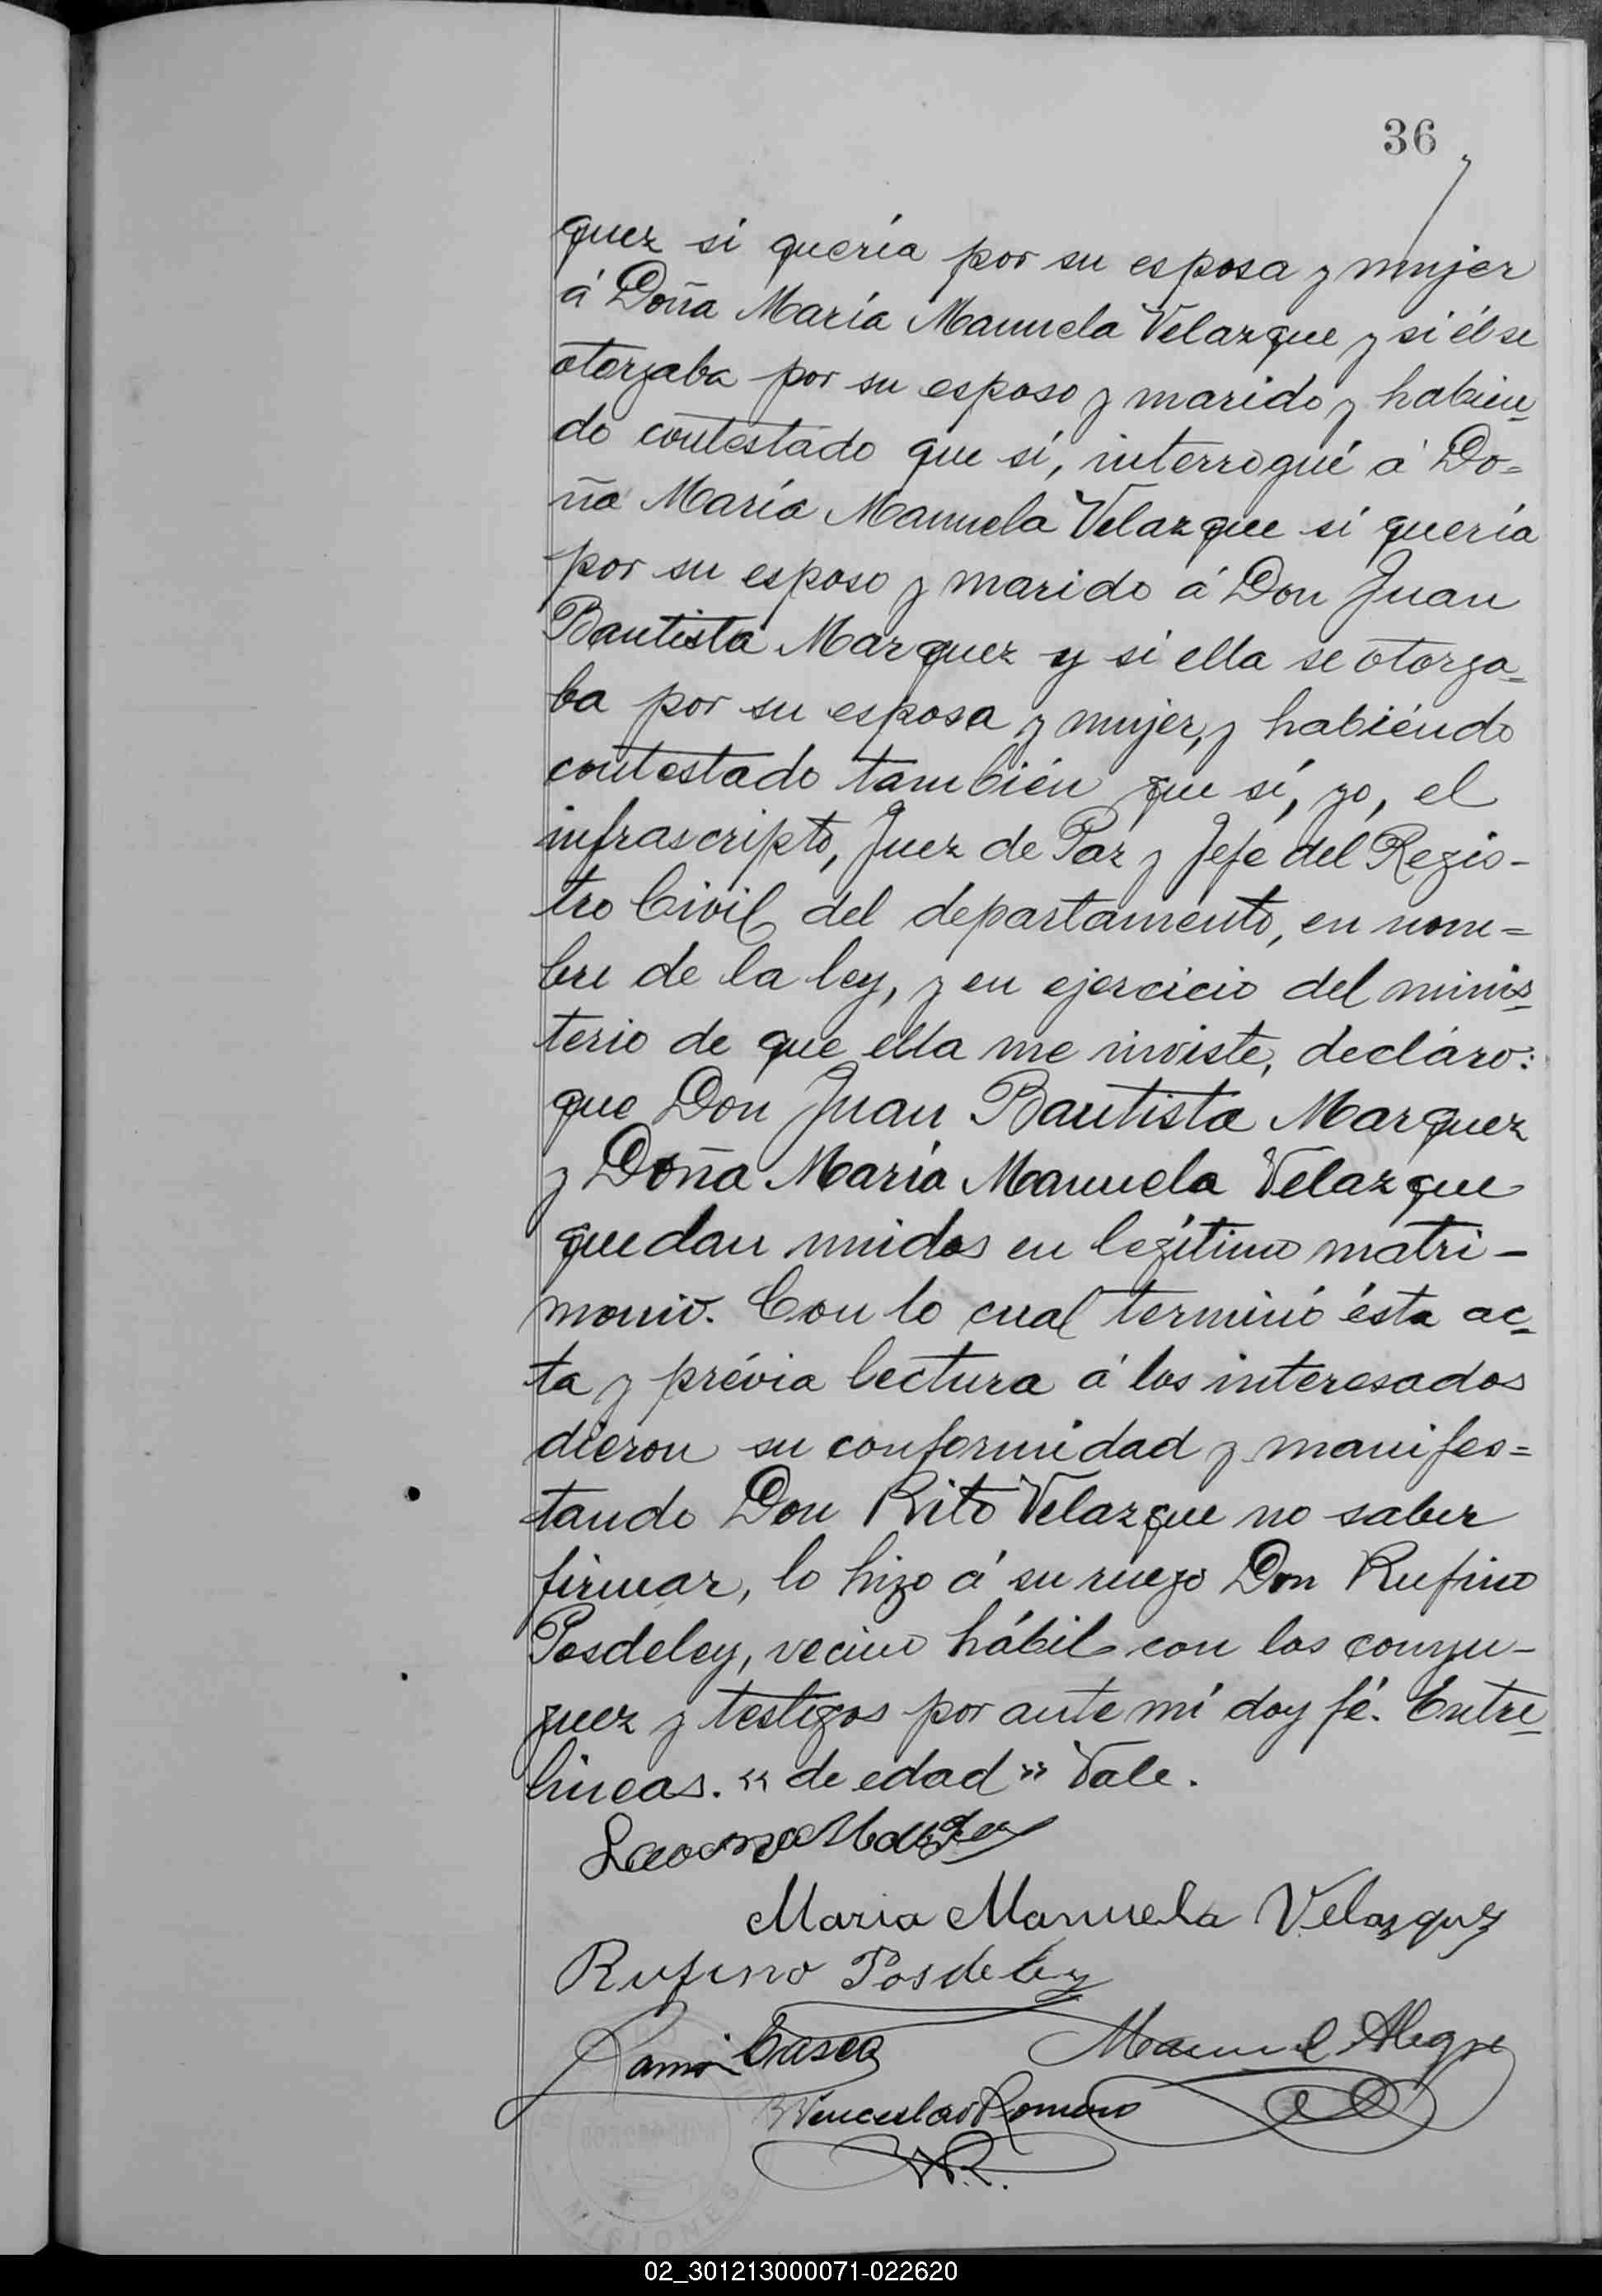 36
quez si quería por su esposa y mujer
á Doña María Manuela Velazque y si él se
otorgaba por su esposo y marido y habien
do contestado que sí, interrogué á Do=
ña María Manuela Velazque si quería
por su esposo y marido á Don Juan
Bautista Marquez y si ella se otorga=
ba por su esposa y mujer, y habiéndo
contestado también que sí, yo, el
infrascripto, Juez de Paz y Jefe del Regis-
tro Civil del departamento, en nom=
bre de la ley, y en ejercicio del minis
terio de que ella me inviste, decláro:
que Don Juan Bautista Marquez
y Doña María Manuela Velazque
quedan unidos en legítimo matri-
monio. Con lo cual terminó ésta ac
ta y prévia lectura á los interesados
dieron su conformidad y manifes=
tando Don Rito Velazque no saber
firmar, lo hizo á su ruego Don Rufino
Posdeley, vecino hábil con los conyu-
guez y testigos por ante mí doy fé. Entre
lineas. « de edad » Vale.
Maria Manuela Velazquez
Rufino Posdeley
Ramón Manuel Alegre
Wenceslao Romero
W.R.
MISIONES
02_301213000071-022620